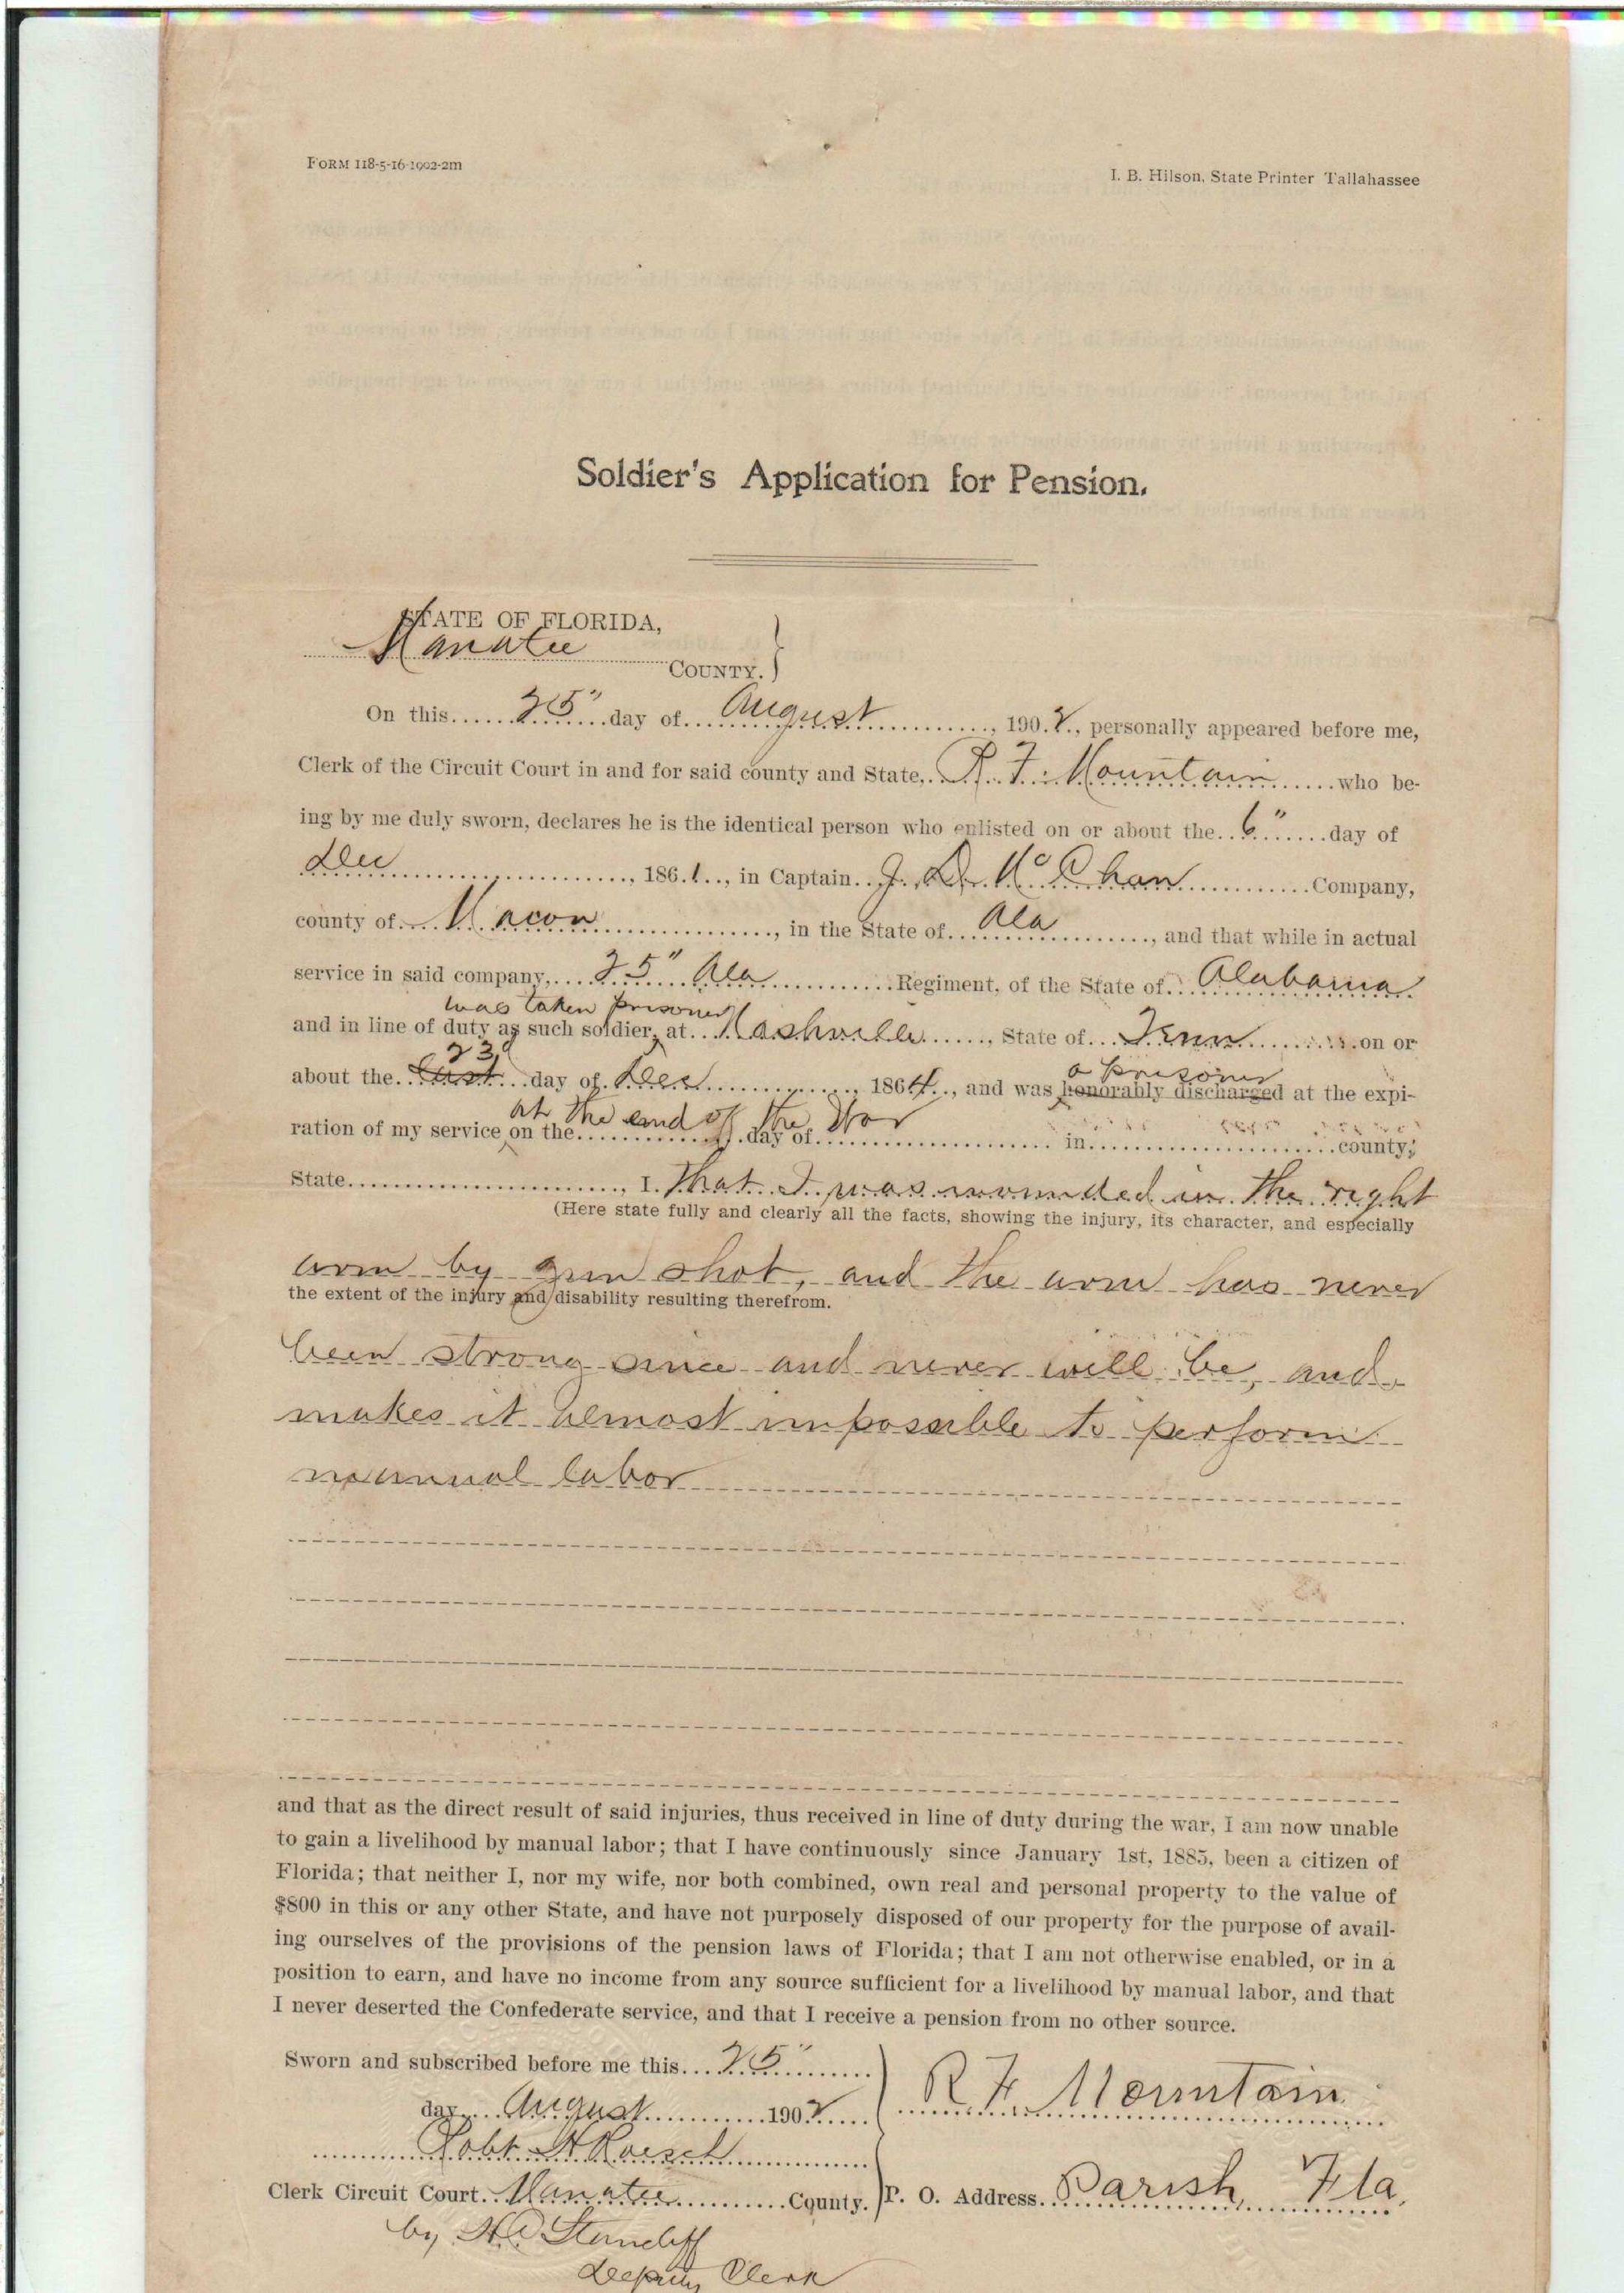 FORM 118-5-16-1902-2m
I. B. Hilson, State Printer Tallahassee
Soldier's Application for Pension.
STATE OF FLORIDA,
Manatee COUNTY.
On this 25" day of August, 1902, personally appeared before me,
Clerk of the Circuit Court in and for said county and State, R. F. Mountain who be-
ing by me duly sworn, declares he is the identical person who enlisted on or about the 6" day of
Dec, 1861, in Captain J. D. McChan Company,
county of Macon, in the State of Ala, and that while in actual
service in said company, 25" Ala Regiment, of the State of Alabama
was taken prisoner
and in line of duty as such soldier, at Nashville, State of Tenn on or
23d a prisoner
about the last day of Dec, 1864, and was honorably discharged at the expi-
at the end of the War
ration of my service on the day of in county,
State, I That I was wounded in the right
(Here state fully and clearly all the facts, showing the injury, its character, and especially
arm by gun shot, and the arm has never
the extent of the injury and disability resulting therefrom.
been strong since and never will be, and
makes it almost impossible to perform
manual labor
and that as the direct result of said injuries, thus received in line of duty during the war, I am now unable
to gain a livelihood by manual labor; that I have continuously since January 1st, 1885, been a citizen of
Florida; that neither I, nor my wife, nor both combined, own real and personal property to the value of
$800 in this or any other State, and have not purposely disposed of our property for the purpose of avail-
ing ourselves of the provisions of the pension laws of Florida; that I am not otherwise enabled, or in a
position to earn, and have no income from any source sufficient for a livelihood by manual labor, and that
I never deserted the Confederate service, and that I receive a pension from no other source.
Sworn and subscribed before me this 25"
day August 1902
R F Mountain
Robt H Roesch
Clerk Circuit Court Manatee County. P. O. Address Parish, Fla.
by H. A. Stancliff
Deputy Clerk